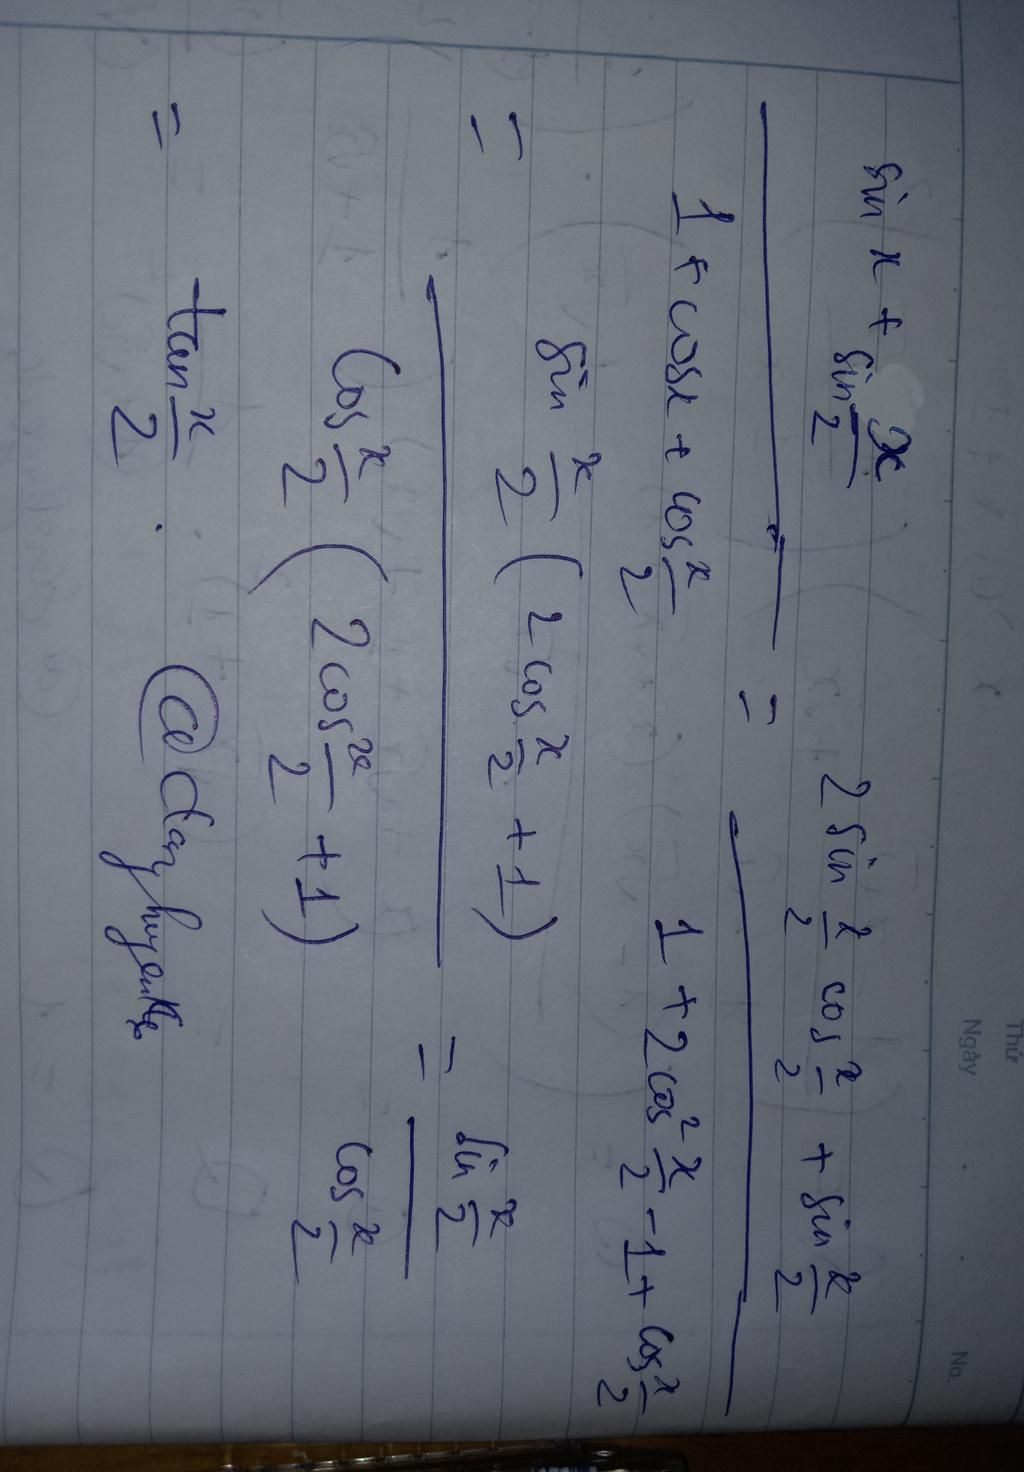 Thứ
Ngày
No.
sin x + sin x/2 / 1 + cosx + cos x/2 = 2 sin x/2 cos x/2 + sin x/2 / 1 + 2cos² x/2 - 1 + cos x/2
= sin x/2 ( 2 cos x/2 + 1 ) / cos x/2 ( 2 cos x/2 + 1 ) = sin x/2 / cos x/2
= tan x/2 .